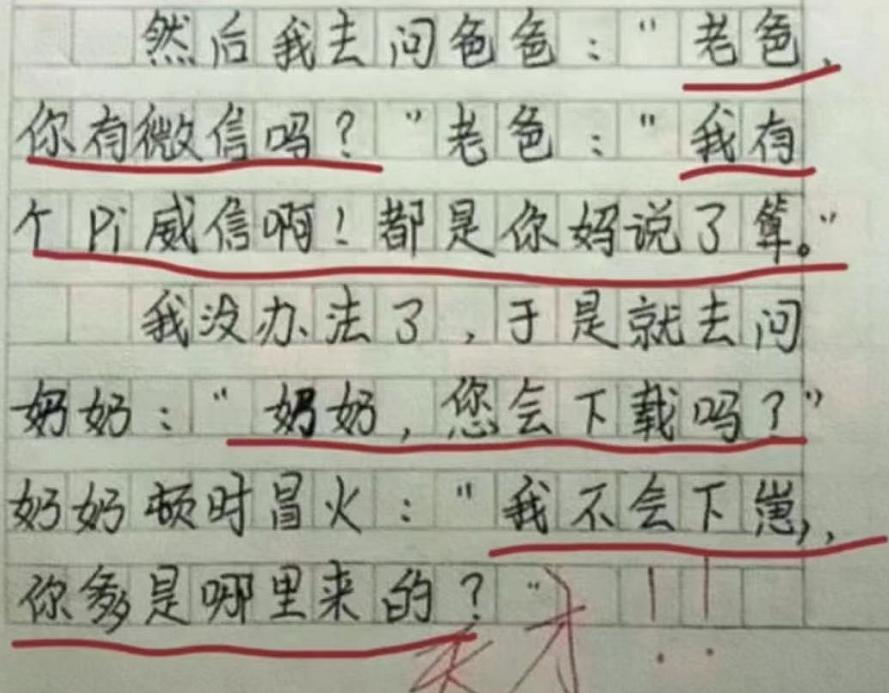 然后我去问爸爸:"老爸,
你有微信吗?"老爸:"我有
个Pi威信啊!都是你妈说了算。"
我没办法了,于是就去问
奶奶:"奶奶,您会下载吗?"
奶奶顿时冒火:"我不会下崽,,
你爹是哪里来的?"
天才!!